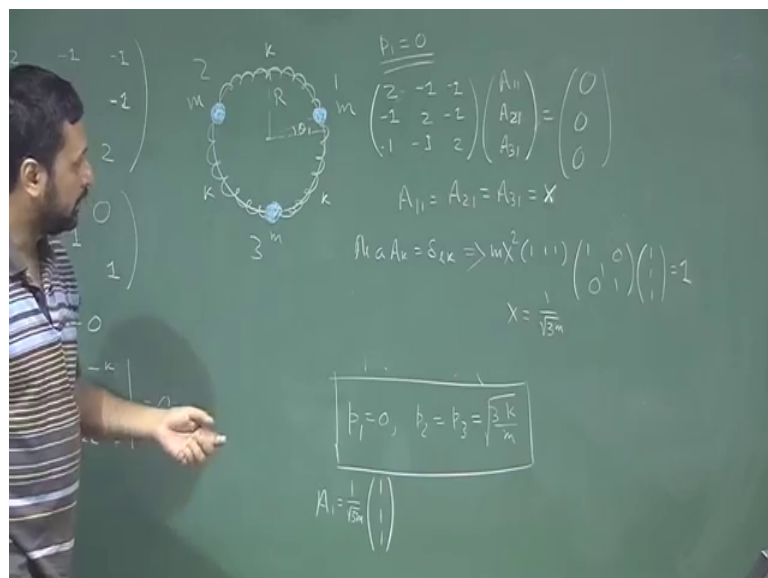 2 -1 -1
-1
2
0
1
1
-0
-k
=0
k
2 1
m R m
θ₁
k k
m
3
p₁=0
(2 -1 -1) (A₁₁) (0)
(-1 2 -1) (A₂₁) = (0)
(-1 -1 2) (A₃₁) (0)
A₁₁ = A₂₁ = A₃₁ = x
a A_k = δ_ℓk => mx² (1 1 1) (1 0 / 1 / 0 1) (1 / 1 / 1) = 1
x = 1/√3m
p₁=0, p₂ = p₃ = √3k/m
A₁ = 1/√3m (1 / 1 / 1)